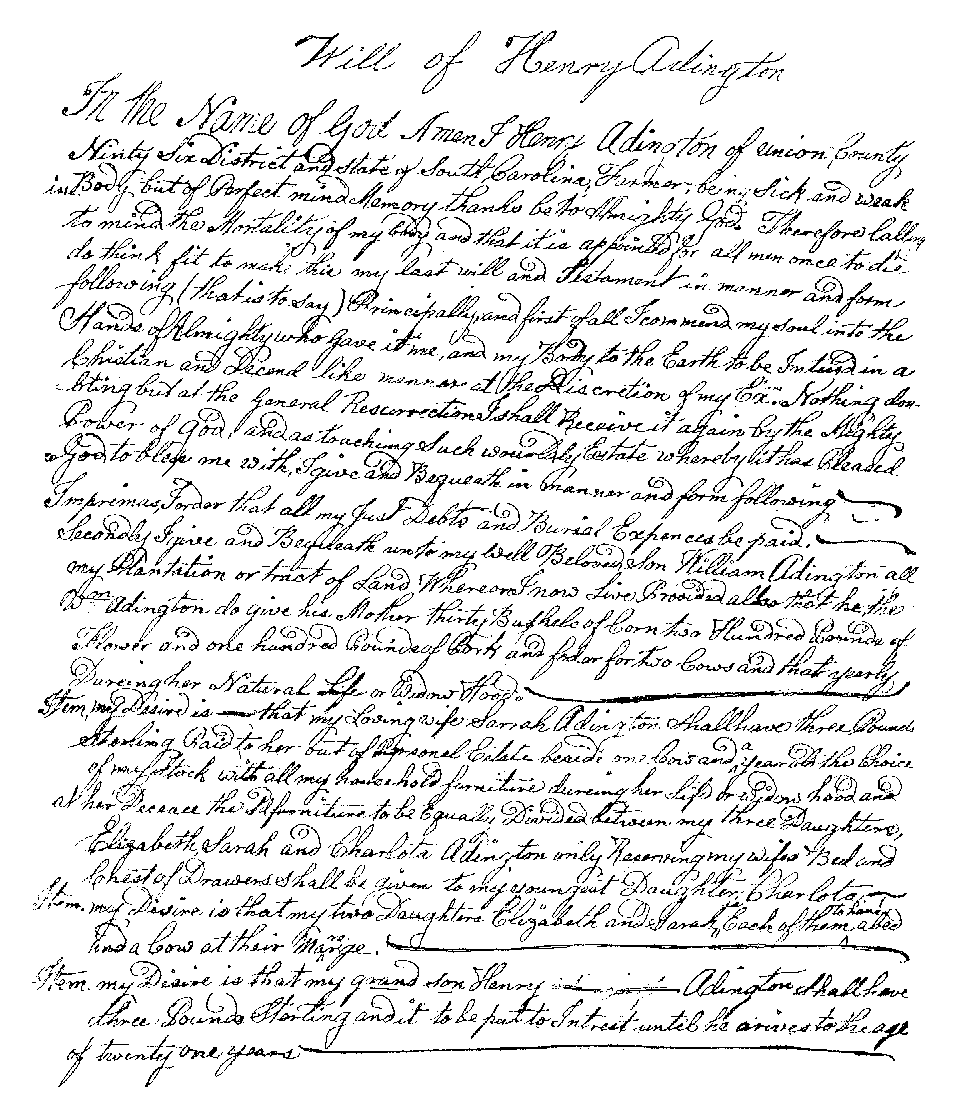 Will of Henry Adington
In the Name of God Amen I Henry Adington of Union County
Ninty Six District and State of South Carolina, Farmer, being Sick and weak
in Body, but of Perfect mind Memory thanks be to Almighty God. Therefore Calling
to mind the Mortality of my body and that it is appointed for all men once to die
do think fit to make this my last will and Testament in manner and form
following (that is to say) Principally, and first of all I commend my soul into the
Hands of Almighty who gave it me, and my Body to the Earth to be Inteird in a
Chistian and Decend like manner at the Discretion of my Exrs. Nothing dou-
bting but at the General Resurrection I shall Receive it again by the Mighty
Power of God, and as touching Such wourldly Estate whereby it has Pleased
God to bless me with, I give and Bequeath in manner and form following
Impremas, I order that all my Just Debts and Burial Expences be paid.
Secondly I give and Bequeath unto my well Beloved, son William Adington all
my Plantition or tract of Land Whereon I now Live Provided also that he, the
Wm Adington do give his Mother thirty Bushels of Corn two Hundred Pounds of
Flower and one hundred Pounds of Pork and fodar for two Cows and that yearly
Dureing her Natural Life or Widow Hood.
Item, my Desire is that my Loving wife Sarrah Adington shall have three Pounds
Sterling Paid to her out of Personal Estate beside one Cow and a year old the Choice
of my stock with all my household furniture dureing her Life or widow hood and
at her Deceace the Sd furniture to be Equally Divided between my three Daughters,
Elizabeth Sarah and Charlota Adington only Reserving my wifes Bed and
Chest of Drawers shall be given to my youngest Daughter, Charloto
Item. my Desire is that my two Daughters Elizabeth and Sarah, Each of them to have a bed
and a Cow at their Marrge.
Item. my Desire is that my grand son Henry Adington shall have
three Pounds Sterling and it to be put to Intrest until he arives to the age
of twenty one years